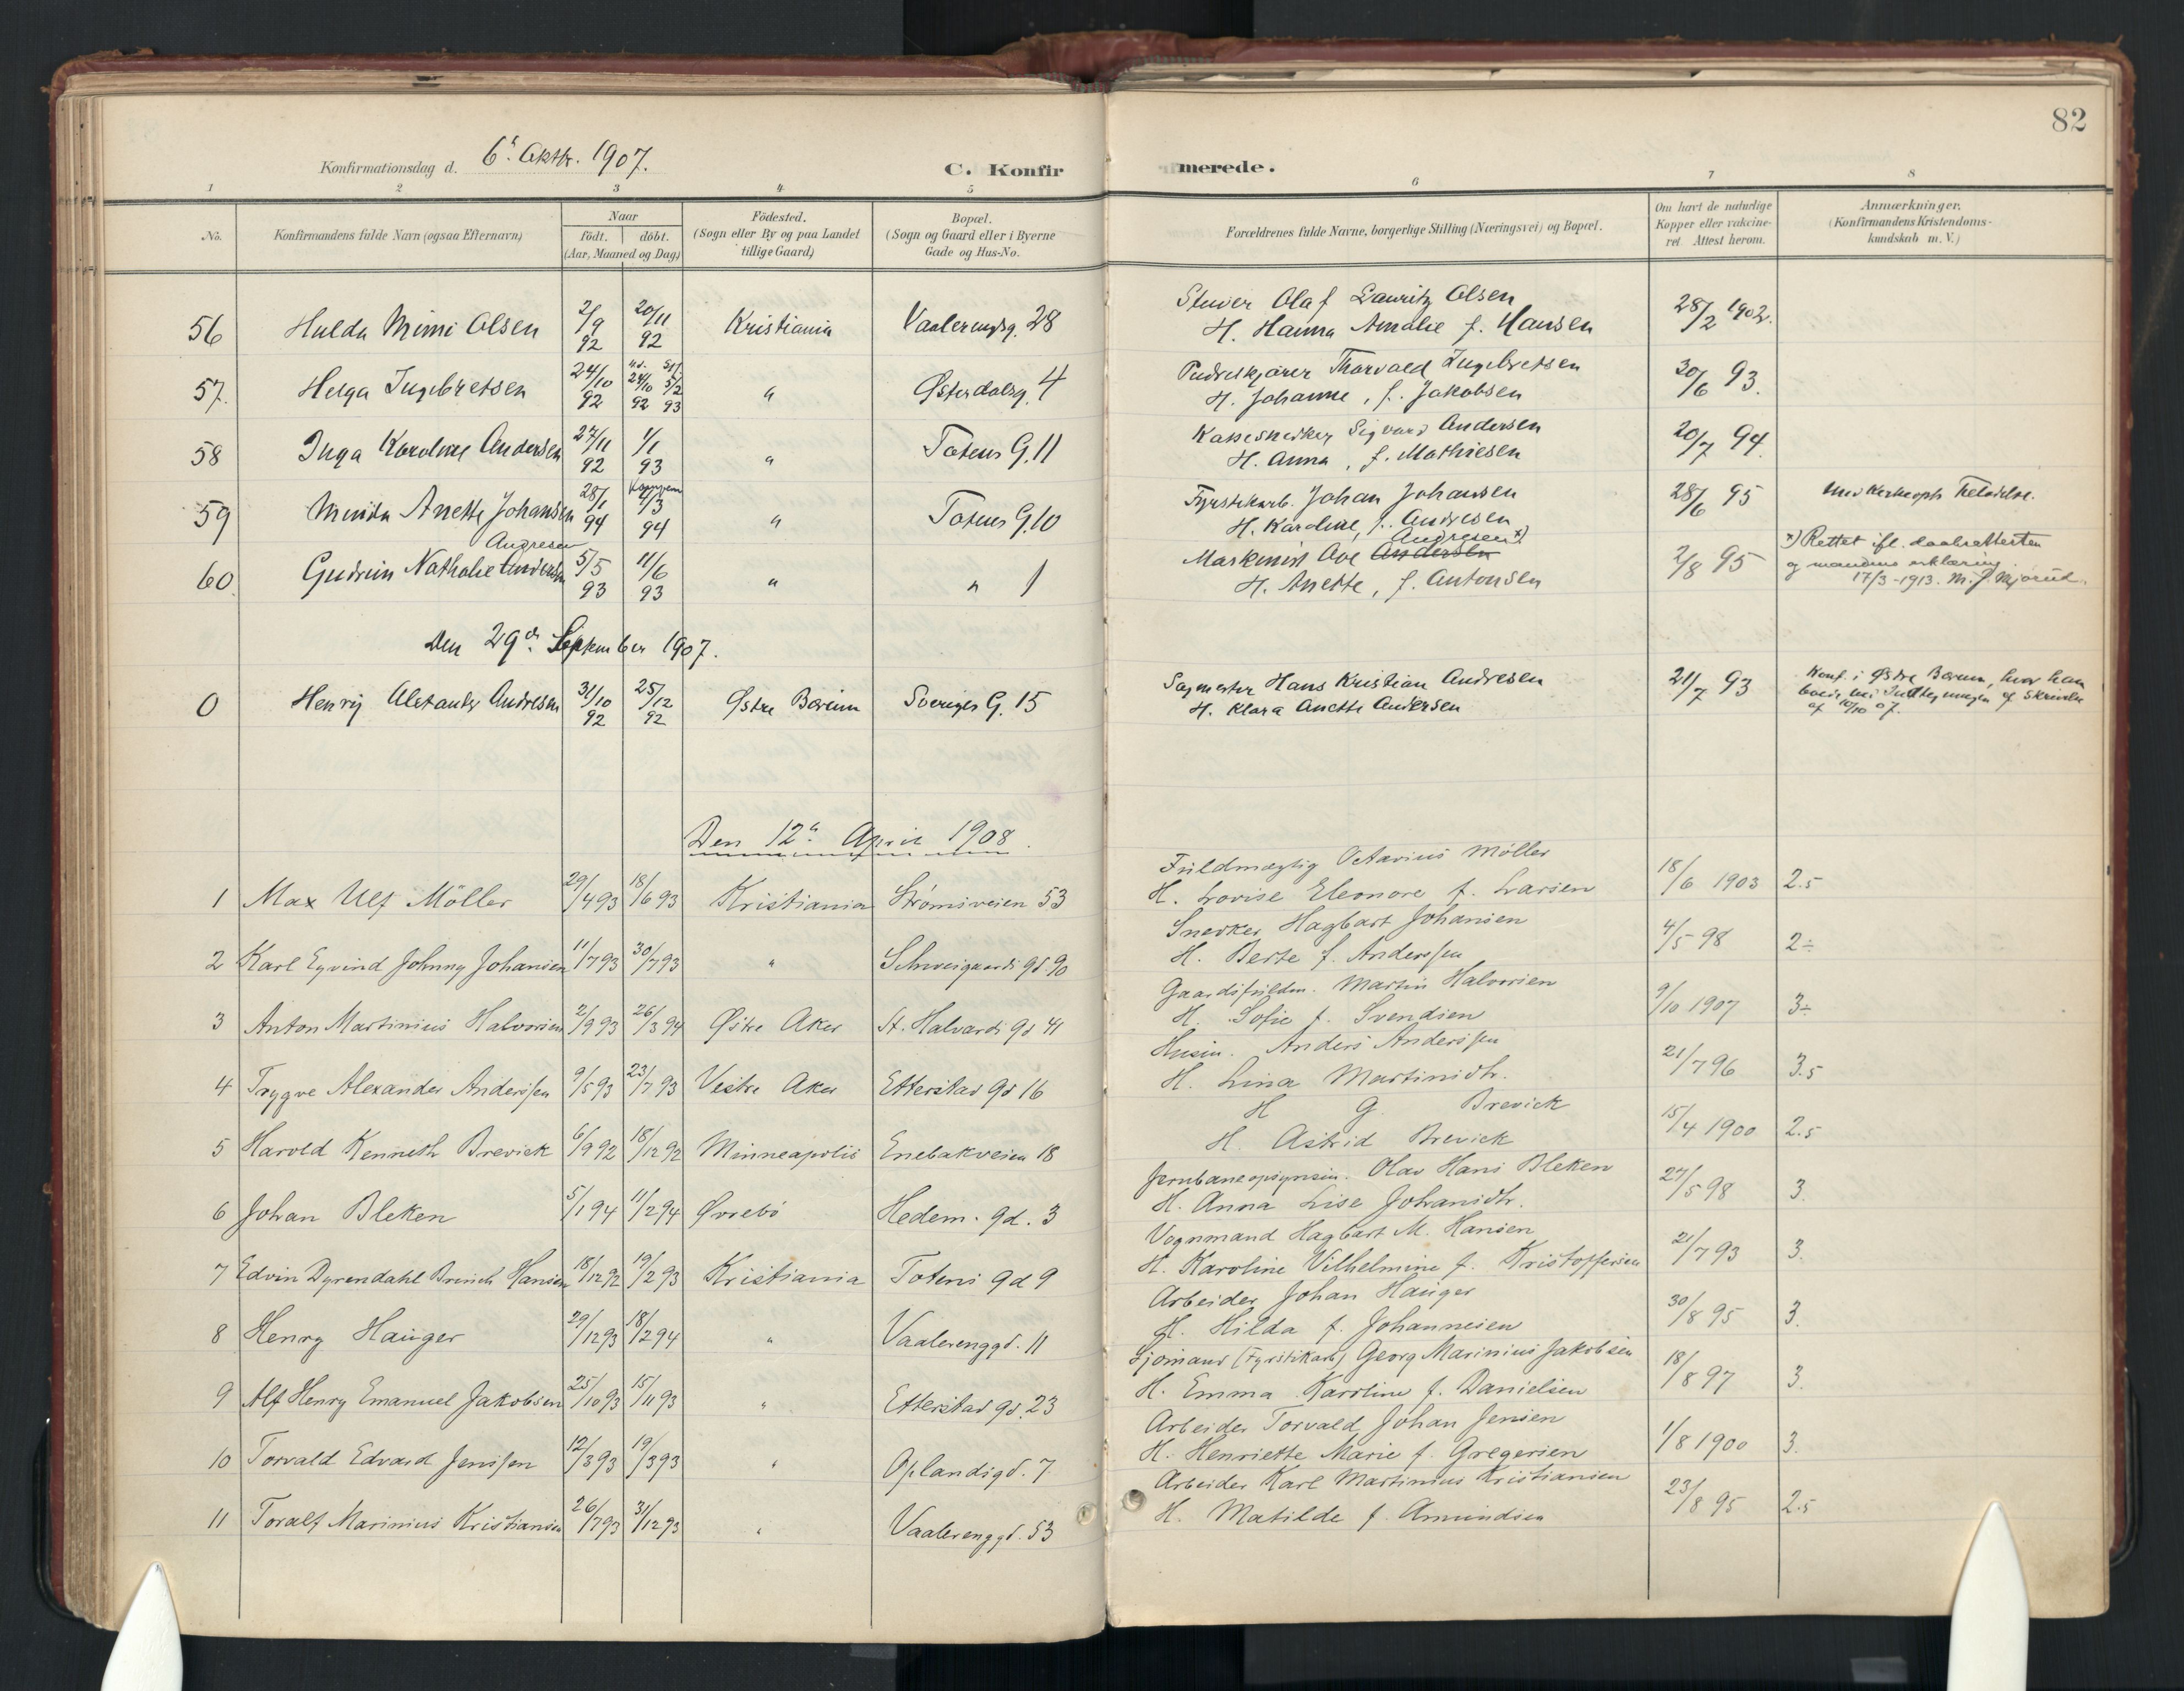 82
Konfirmationsdag d. 6te Oktbr. 1907.
C. Konfirmerede.
1 2 3 4 5 6 7 8
No.
Konfirmandens fulde Navn (ogsaa Efternavn)
Naar
født. døbt.
(Aar, Maaned og Dag)
Födested.
(Sogn eller By og paa Landet
tillige Gaard)
Bopæl.
(Sogn og Gaard eller i Byerne
Gade og Hus-No.
Forældrenes fulde Navne, borgerlige Stilling (Næringsvei) og Bopæl.
Om havt de naturlige
Kopper eller vakcine-
ret Attest herom.
Anmærkninger.
(Konfirmandens Kristendoms-
kundskab m. V.)
56 Hulda Mimi Olsen 2/9 92 20/11 92 Kristiania Vaalerengsg. 28 Stuver Olaf Lauritz Olsen 28/2 1902.
H. Hanna Amalie f. Hansen
57. Helga Ingebretsen 24/10 92 24/10 92 5/2 93 " Østerdalsg. 4 Pudreskjører Thorvald Ingebretsen 30/6 93.
H. Johanne, f. Jakobsen
58 Inga Karoline Andersen 27/11 92 1/1 93 " Totens G. 11 Kassesnedker Sigvard Andersen 20/7 94.
H. Anna, f. Mathiesen
59 Minda Anette Johansen 28/1 94 4/3 94 " Totens G. 10 Fyrstikarb. Johan Johansen 28/6 95
H. Karoline, f. Andresen
60. Gudrun Nathalie Andersen Andresen 5/5 93 11/6 93 " " 1 Maskinist Ove Andersen Andresen x) 2/8 95 x) Rettet ifl. daabsattesten
H. Anette, f. Antonsen og mandens erklæring.
17/3-1913. M. J. Mjørud.
Den 29de September 1907.
0 Henry Alexander Andresen 31/10 92 25/12 92 Østre Bærum Sveriges G. 15 Sagmester Hans Kristian Andresen 21/7 93 Konf. i Østre Bærum, hvor han
H. Klara Anette Andersen boede ved Indtegningen cf Skrivelse
af 10/10 07.
Den 12te April 1908.
1 Max Ulf Möller 29/4 93 18/6 93 Kristiania Strømsveien 53 Fuldmægtig Octavius Möller 18/6 1903 2.5
H. Lovise Eleonore f. Larsen
2 Karl Eyvind Johnny Johansen 11/7 93 30/7 93 " Schweigaards gd. 90 Snedker Hagbart Johansen 4/5 98 2÷
H. Berte f. Anderssen
3 Anton Martinius Halvorsen 2/9 93 26/3 94 Østre Aker St. Halvards gd 41 Gaardsfuldm. Martin Halvorsen 9/10 1907 3÷
H. Sofie f. Svendsen
4 Trygve Alexander Anderssen 9/5 93 23/7 93 Vestre Aker Etterstad gd 16 Husm. Anders Anderssen 21/7 96 3.5
H. Lina Martinsdtr.
5 Harold Kenneth Brevick 6/9 92 18/12 92 Minneapolis Enebakveien 18 H G. Brevick 15/4 1900 2.5
H. Astrid Brevick
6 Johan Bleken 5/1 94 11/2 94 Øvrebö Hedem. gd. 3 Jernbaneopsynsm. Olav Hans Bleken 27/5 98 3.
H. Anna Lise Johansdtr.
7 Edvin Dyrendahl Brinch Hansen 18/12 92 19/2 93 Kristiania Totens gd 9 Vognmand Hagbart M. Hansen 21/7 93 3.
H. Karoline Vilhelmine f. Kristoffersen
8 Henry Hauger 29/12 93 18/2 94 " Vaalerenggd. 11 Arbeider Johan Hauger 30/8 95 3.
H. Hilda f. Johannesen
9 Alf Henry Emanuel Jakobsen 25/10 93 15/11 93 " Etterstad gd. 23 Sjömand (Fyrstikarb) Georg Marinius Jakobsen 18/8 97 3.
H. Emma Karoline f. Danielsen
10 Torvald Edvard Jenssen 12/3 93 19/3 93 " Oplandsgd. 7. Arbeider Torvald Johan Jensen 1/8 1900 3.
H. Henriette Marie f. Gregersen
11 Toralf Marinius Kristiansen 26/7 93 31/12 93 " Vaalerenggd. 53 Arbeider Karl Martinius Kristiansen 23/8 95 2.5
H. Matilde f. Amundsen